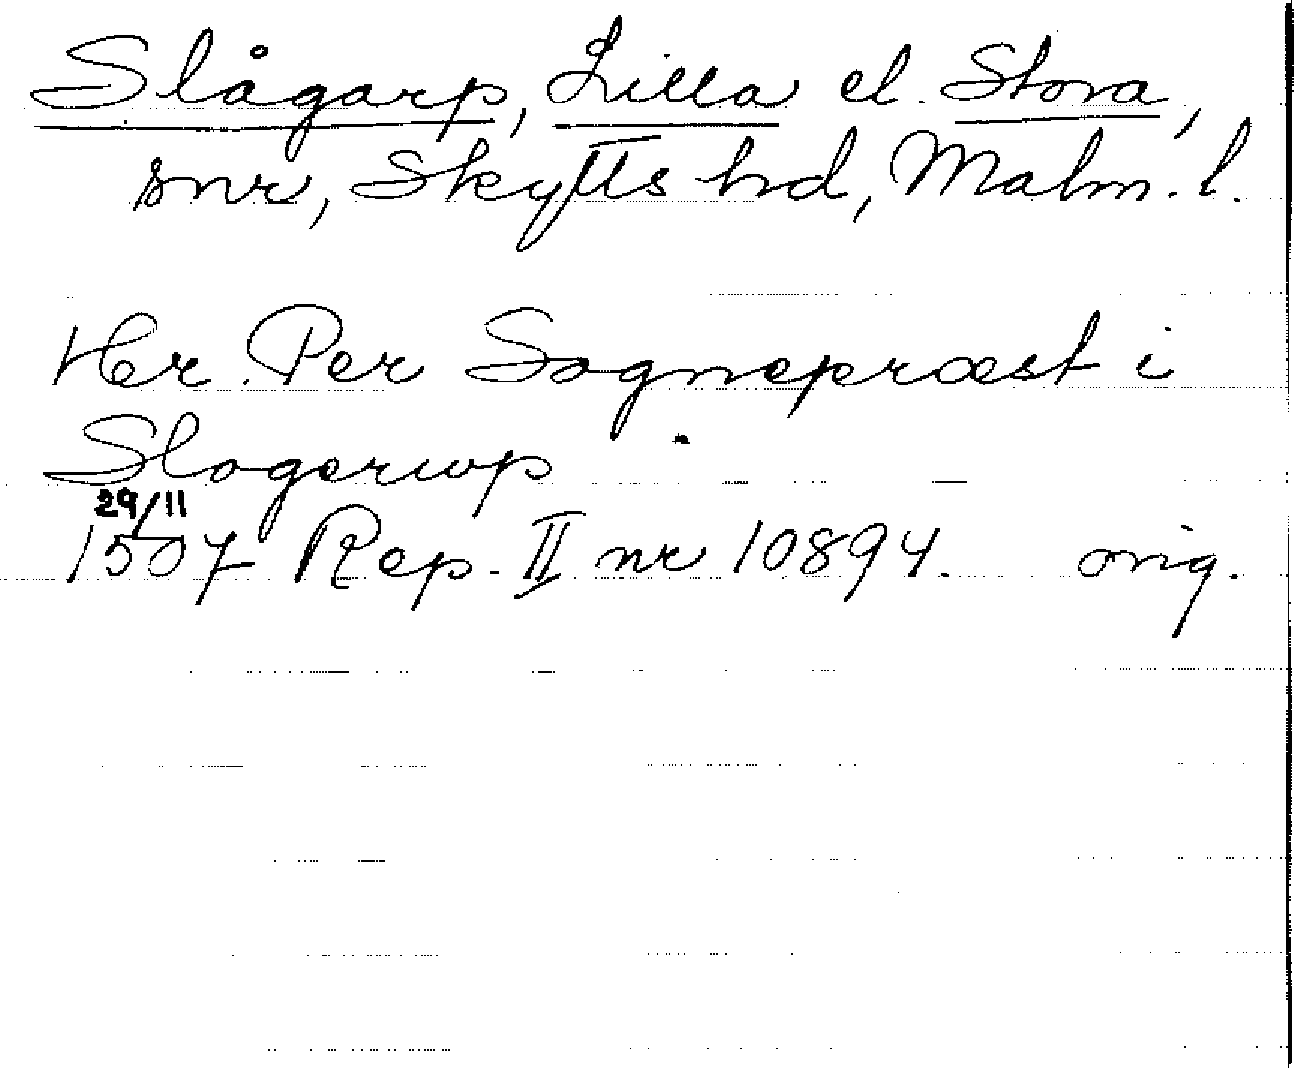 Slågarp, Lilla el. Stora,
snr, Skytts hd, Malm. l.
Her Per Sognepræst i
Slogerwp
29/11
1507 Rep. II nr 10894. orig.